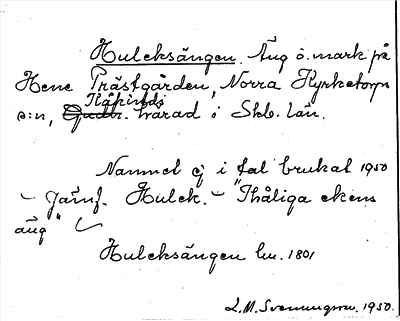 Huleksängen. Äng o. mark på
Hene Prästgården, Norra Kyrketorps
Kåkinds
s:n, härad i Skb. län.
Namnet ej i tal brukat 1950
- Jämf. Hulek. - "Ihåliga ekens
äng"
Huleksängen hm. 1801
L.M. Svenungsson. 1950.